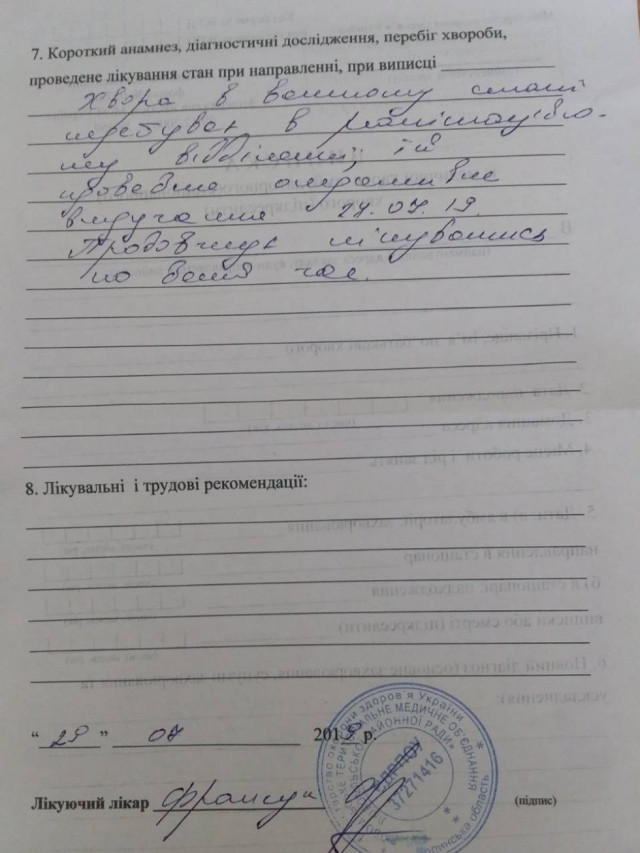 7. Короткий анамнез, діагностичні дослідження, перебіг хвороби,
проведене лікування стан при направленні, при виписці
Хвора в важкому стані
перебуває в реанімаційно-
му відділенні, їй
проведено оперативне
втручання 28.07.19.
Продовжує лікуватись
по даний час.
8. Лікувальні і трудові рекомендації:
“ 29 ” 07 2019 р.
Лікуючий лікар
(підпис)
охорони здоров'я України
МЕДИЧНЕ ОБ'ЄДНАННЯ
РАЙОННОЇ РАДИ»
ЄДРПОУ
37271416
Волинська область